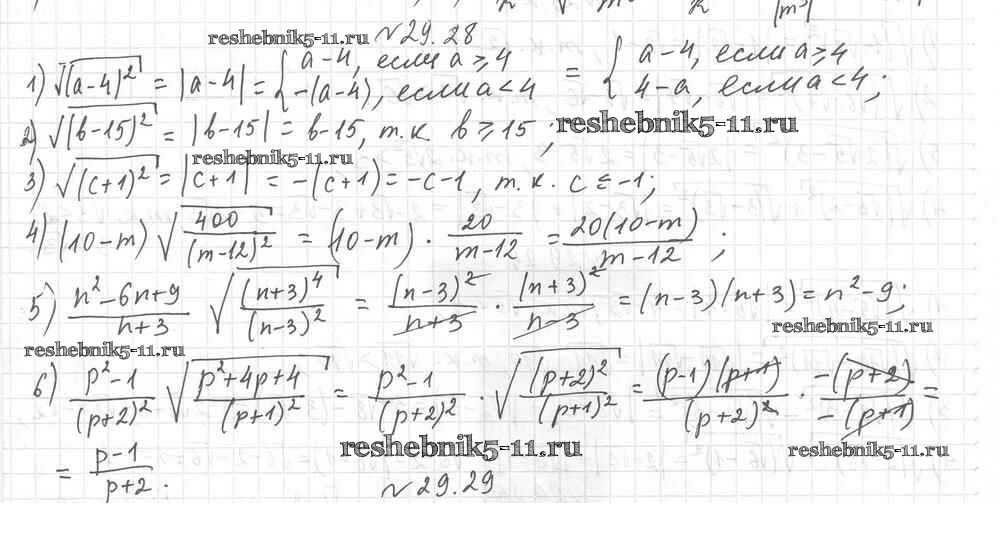 reshebnik5-11.ru №29.28
1) √(a-4)² = |a-4| = { a-4, если a ≥ 4 -(a-4), если a < 4 = { a-4, если a ≥ 4 4-a, если a < 4;
2) √(b-15)² = |b-15| = b-15, т.к b ≥ 15; reshebnik5-11.ru
reshebnik5-11.ru
3) √(c+1)² = |c+1| = -(c+1) = -c-1, т.к. c ≤ -1;
4) (10-m) √(400/(m-12)²) = (10-m) · 20/(m-12) = 20(10-m)/(m-12);
5) (n²-6n+9)/(n+3) √((n+3)⁴/(n-3)²) = (n-3)²/(n+3) · (n+3)²/(n-3) = (n-3)(n+3) = n²-9;
reshebnik5-11.ru reshebnik5-11.ru
6) (p²-1)/(p+2)² √((p²+4p+4)/(p+1)²) = (p²-1)/(p+2)² · √((p+2)²/(p+1)²) = (p-1)(p+1)/(p+2)² · -(p+2)/-(p+1) =
reshebnik5-11.ru reshebnik5-11.ru
= (p-1)/(p+2).
№29.29